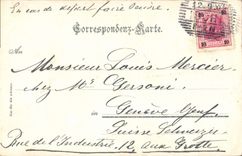 En cas de départ faire suivre.
Correspondenz-Karte.
10 10
Monsieur Louis Mercier
chez Mr Gersoni
Genève Genf
Suisse Schweiz
Rue de l'Industrie, 12 aux Grottes